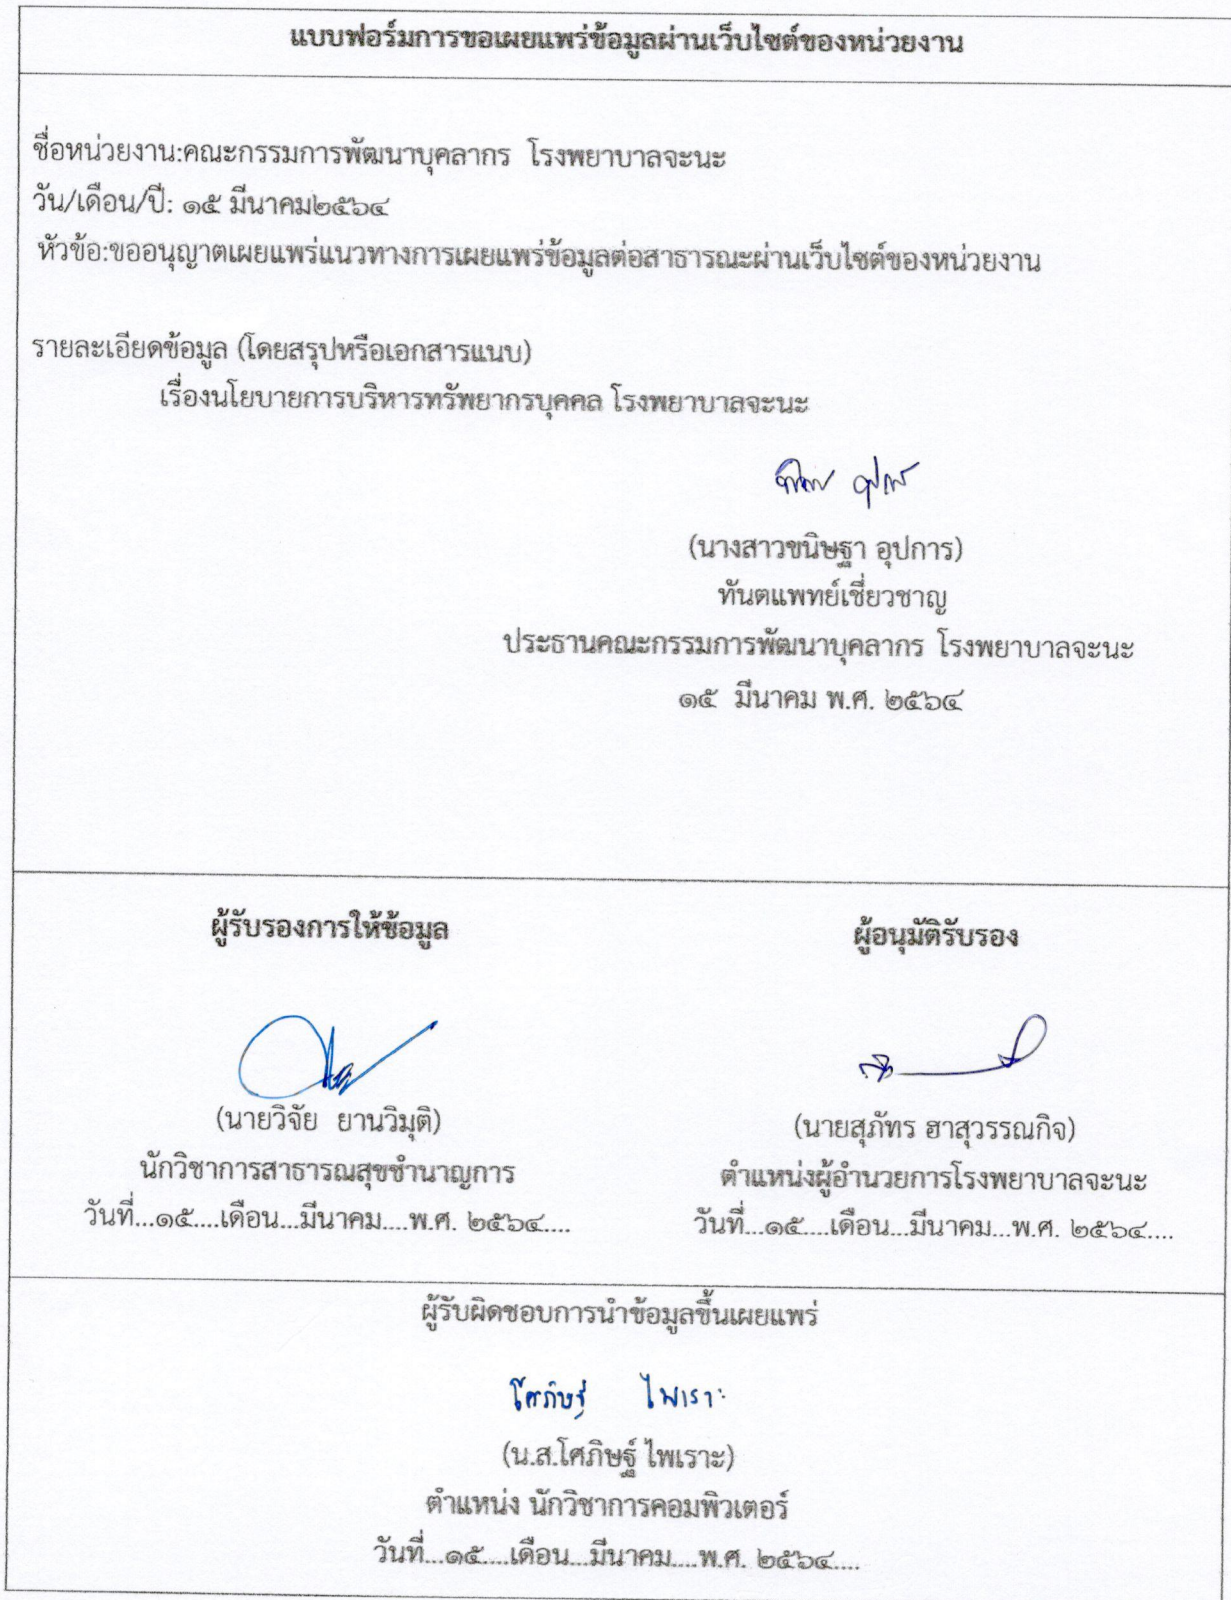 แบบฟอร์มการขอเผยแพร่ข้อมูลผ่านเว็บไซต์ของหน่วยงาน
ชื่อหน่วยงาน:คณะกรรมการพัฒนาบุคลากร โรงพยาบาลจะนะ
วัน/เดือน/ปี: ๑๕ มีนาคม๒๕๖๔
หัวข้อ:ขออนุญาตเผยแพร่แนวทางการเผยแพร่ข้อมูลต่อสาธารณะผ่านเว็บไซต์ของหน่วยงาน
รายละเอียดข้อมูล (โดยสรุปหรือเอกสารแนบ)
เรื่องนโยบายการบริหารทรัพยากรบุคคล โรงพยาบาลจะนะ
(นางสาวขนิษฐา อุปการ)
ทันตแพทย์เชี่ยวชาญ
ประธานคณะกรรมการพัฒนาบุคลากร โรงพยาบาลจะนะ
๑๕ มีนาคม พ.ศ. ๒๕๖๔
ผู้รับรองการให้ข้อมูล
(นายวิจัย ยานวิมุติ)
นักวิชาการสาธารณสุขชำนาญการ
วันที่...๑๕....เดือน...มีนาคม....พ.ศ. ๒๕๖๔....
ผู้อนุมัติรับรอง
(นายสุภัทร ฮาสุวรรณกิจ)
ตำแหน่งผู้อำนวยการโรงพยาบาลจะนะ
วันที่...๑๕....เดือน...มีนาคม...พ.ศ. ๒๕๖๔....
ผู้รับผิดชอบการนำข้อมูลขึ้นเผยแพร่
โศภิษฐ์ ไพเราะ
(น.ส.โศภิษฐ์ ไพเราะ)
ตำแหน่ง นักวิชาการคอมพิวเตอร์
วันที่...๑๕....เดือน...มีนาคม....พ.ศ. ๒๕๖๔....